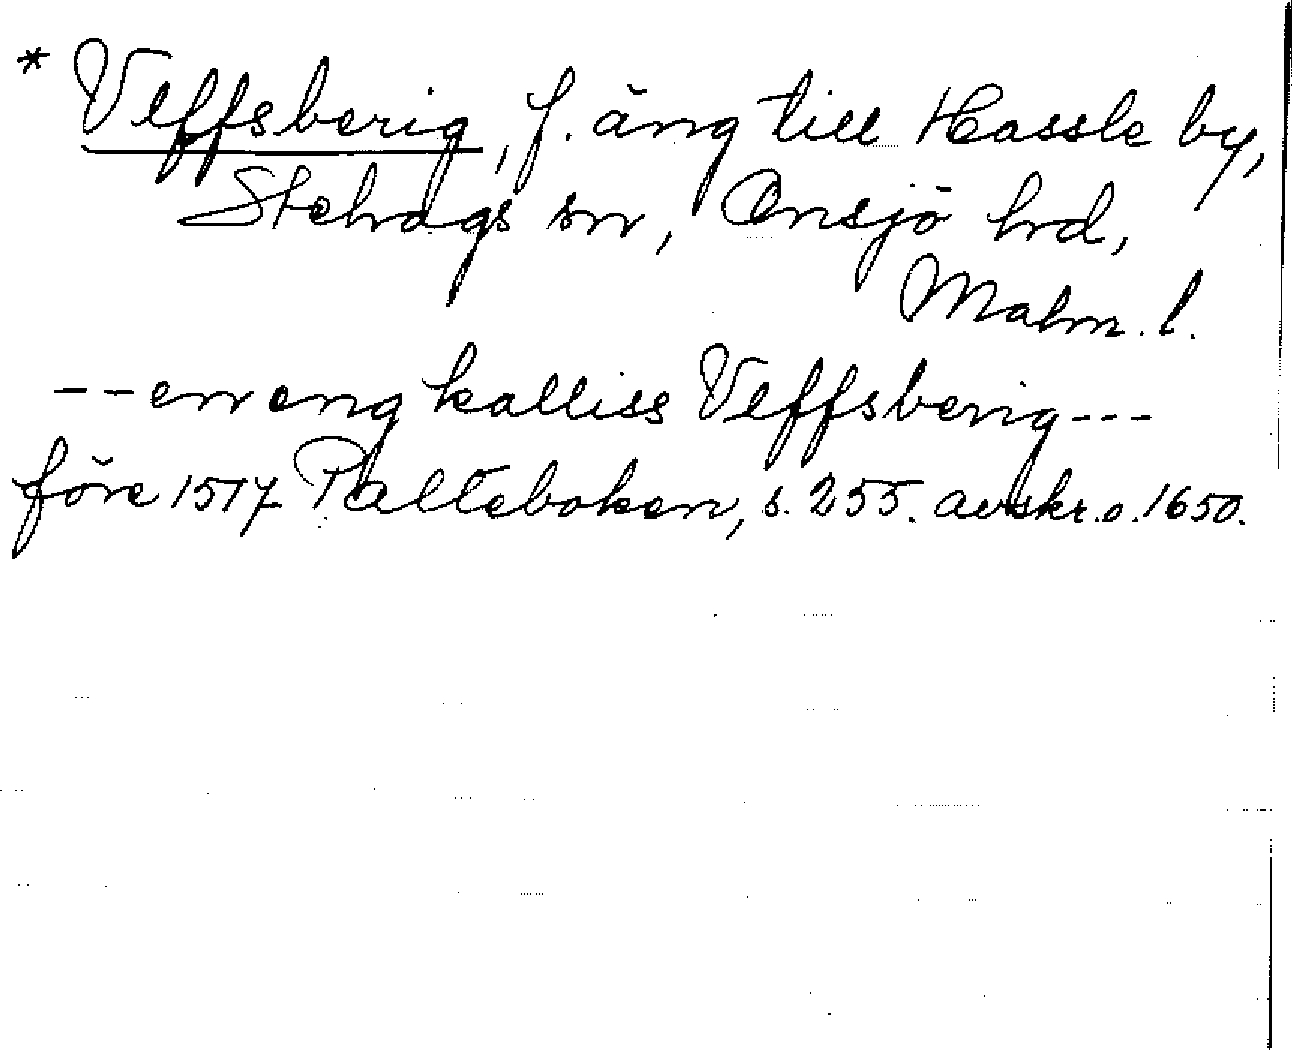 * Veffsberig, f. äng till Hassle by,
Stehags sn, Onsjö hrd,
Malm. l.
-- en eng kalliss Veffsberig ---
före 1517 Palteboken, s. 255. avskr. o. 1650.